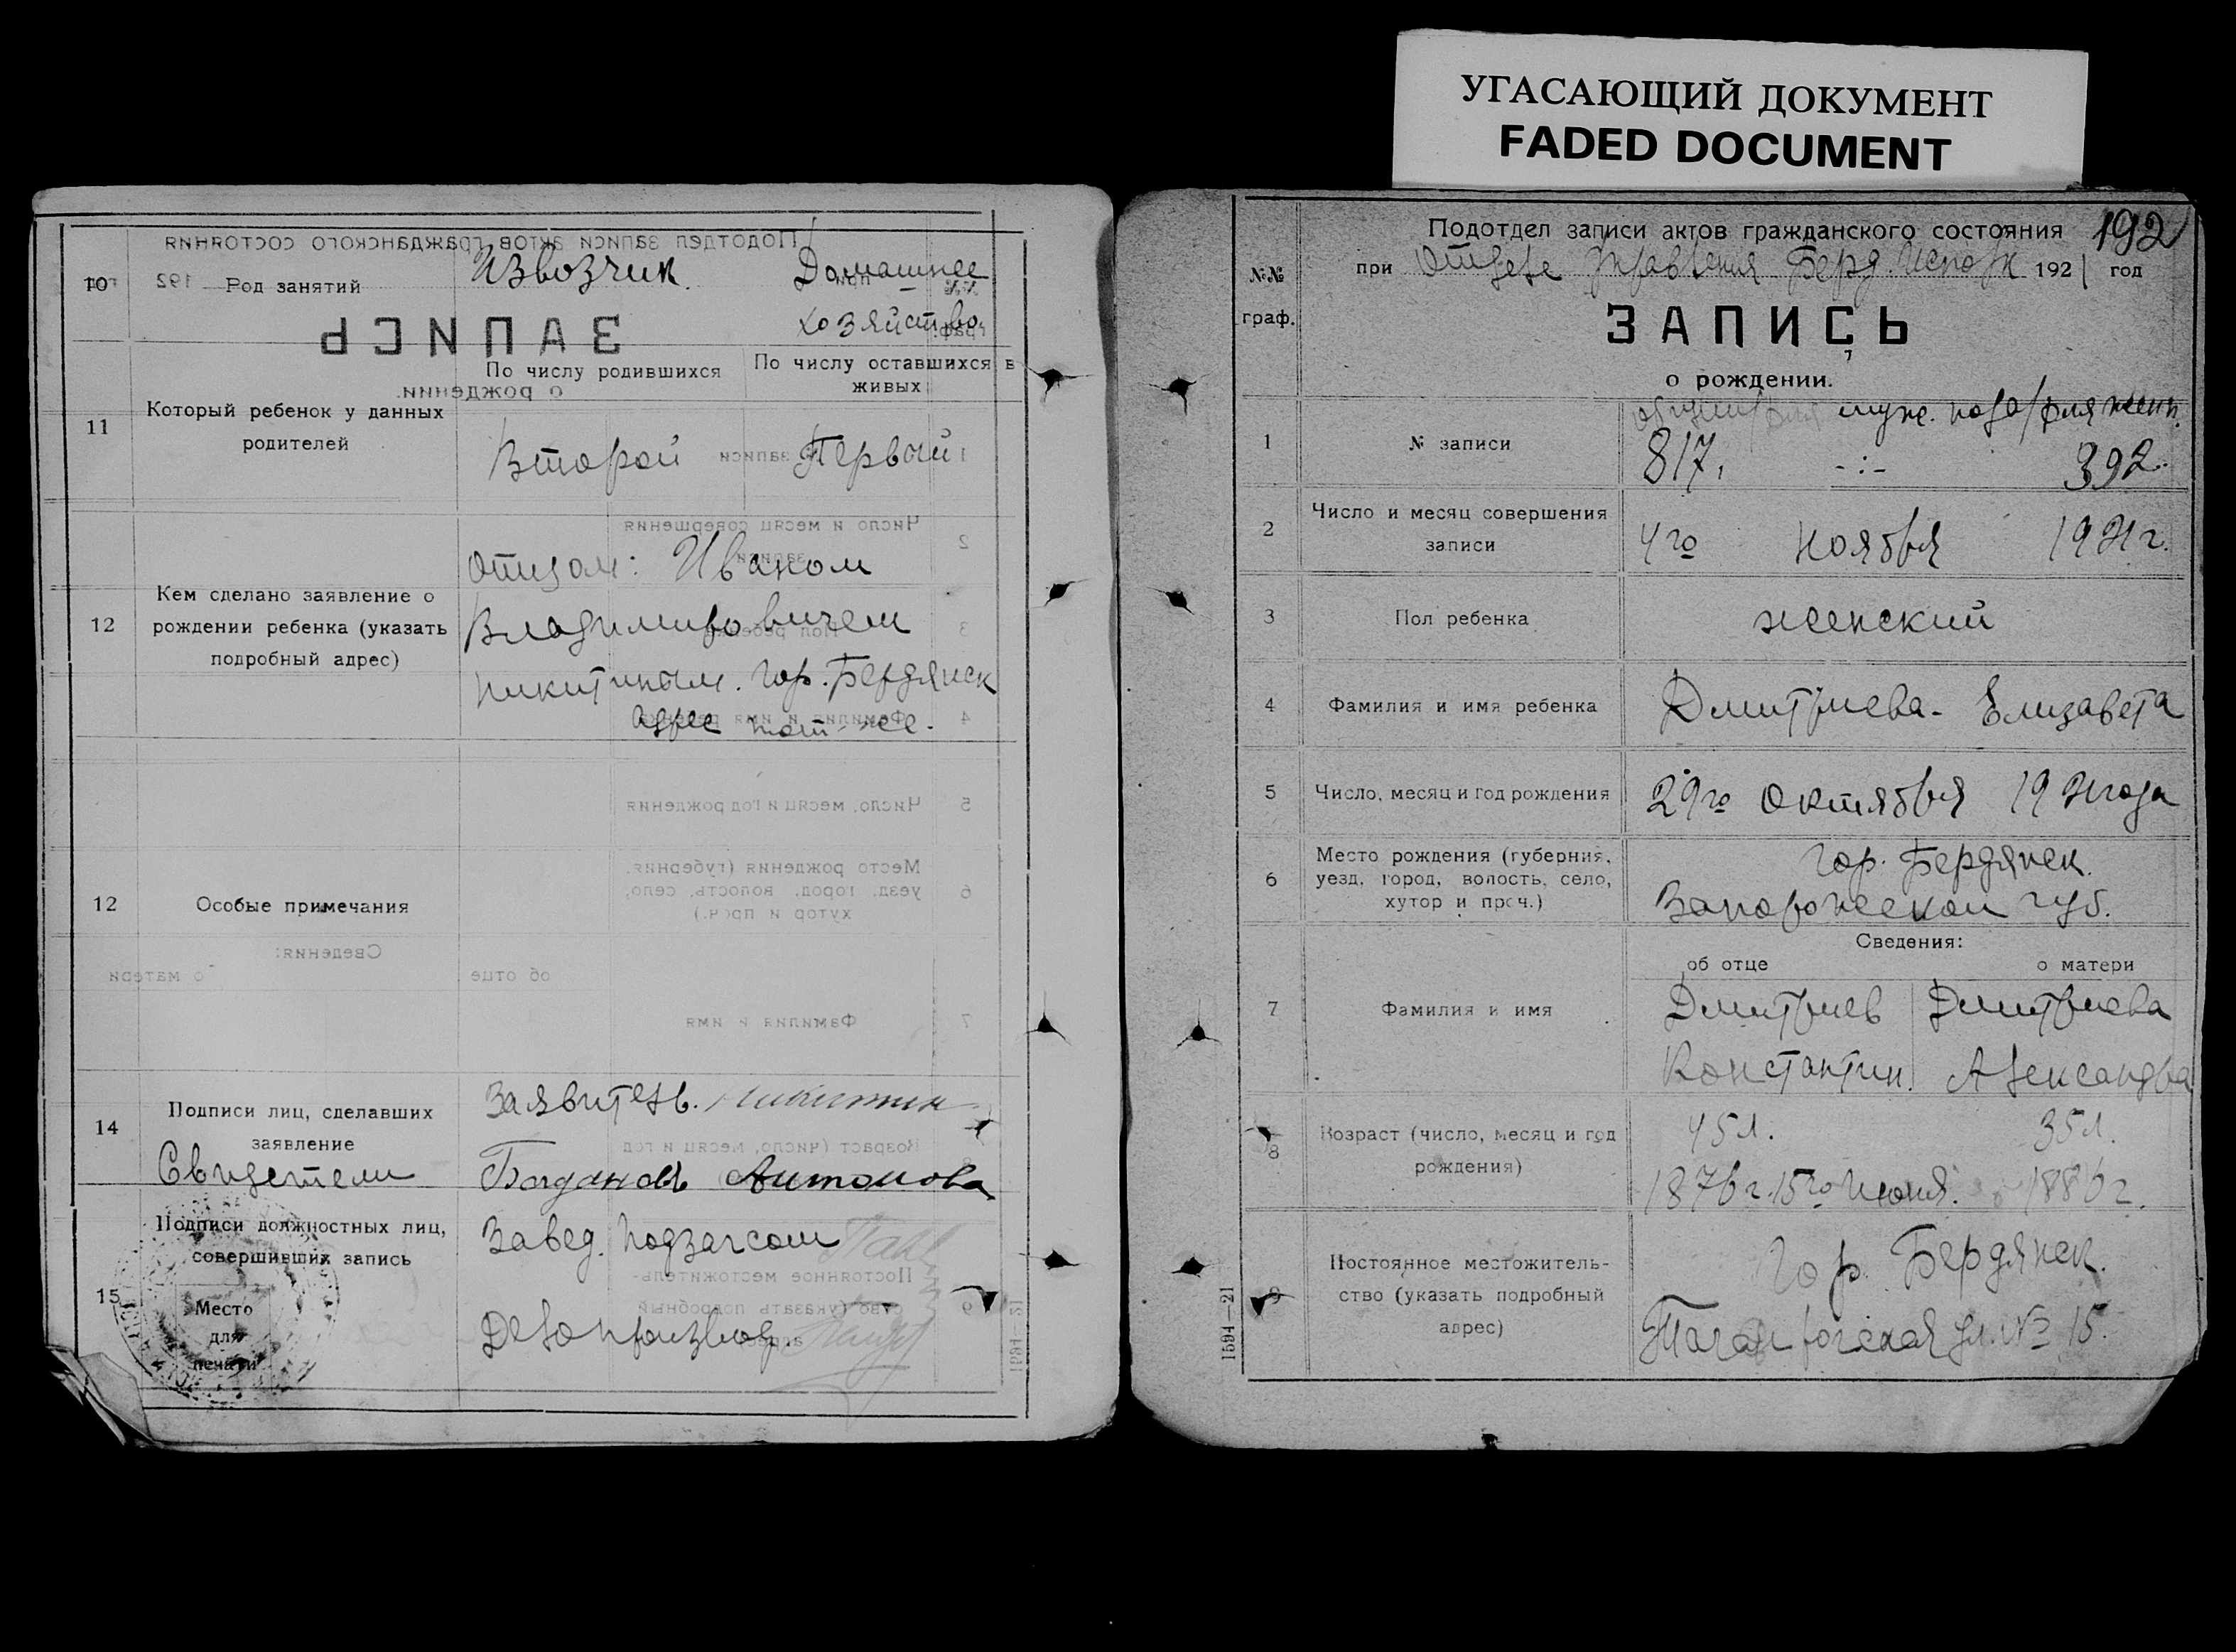 УГАСАЮЩИЙ ДОКУМЕНТ
FADED DOCUMENT
10
Род занятий
Извозчик.
Домашнее
хозяйство.
11
Который ребенок у данных
родителей
По числу родившихся
По числу оставшихся в
живых
Второй
Первый
12
Кем сделано заявление о
рождении ребенка (указать
подробный адрес)
Отцом: Иваном
Владимировичем
Никитиным. Гор. Бердянск
адрес тот-же.
12
Особые примечания
14
Подписи лиц, сделавших
заявление
Свидетели
Заявитель. Никитин
Богдановъ Антонова
15
Подписи должностных лиц,
совершивших запись
Место
для
печати
Завед. Подзагсом
Делопроизвод.
192
Подотдел записи актов гражданского состояния
при Отделе Управления Берд. Исполк 1921 год
№№
граф.
ЗАПИСЬ
о рождении.
1
№ записи
общий/для муж. пола/для женп.
817. -:- 392.
2
Число и месяц совершения
записи
4го Ноября 1921г.
3
Пол ребенка
женский
4
Фамилия и имя ребенка
Дмитриева- Елизавета
5
Число, месяц и год рождения
29го Октября 1921года
6
Место рождения (губерния,
уезд, город, волость, село,
хутор и проч.)
Гор. Бердянск.
Запорожской губ.
Сведения:
об отце
о матери
7
Фамилия и имя
Дмитриев Дмитриева
Константин. Александра
8
Возраст (число, месяц и год
рождения)
45л. 35л.
1876г. 15го Июня. 1886г.
9
Постоянное местожитель-
ство (указать подробный
адрес)
Гор. Бердянск.
Таганрогская ул. № 15.
1594—21